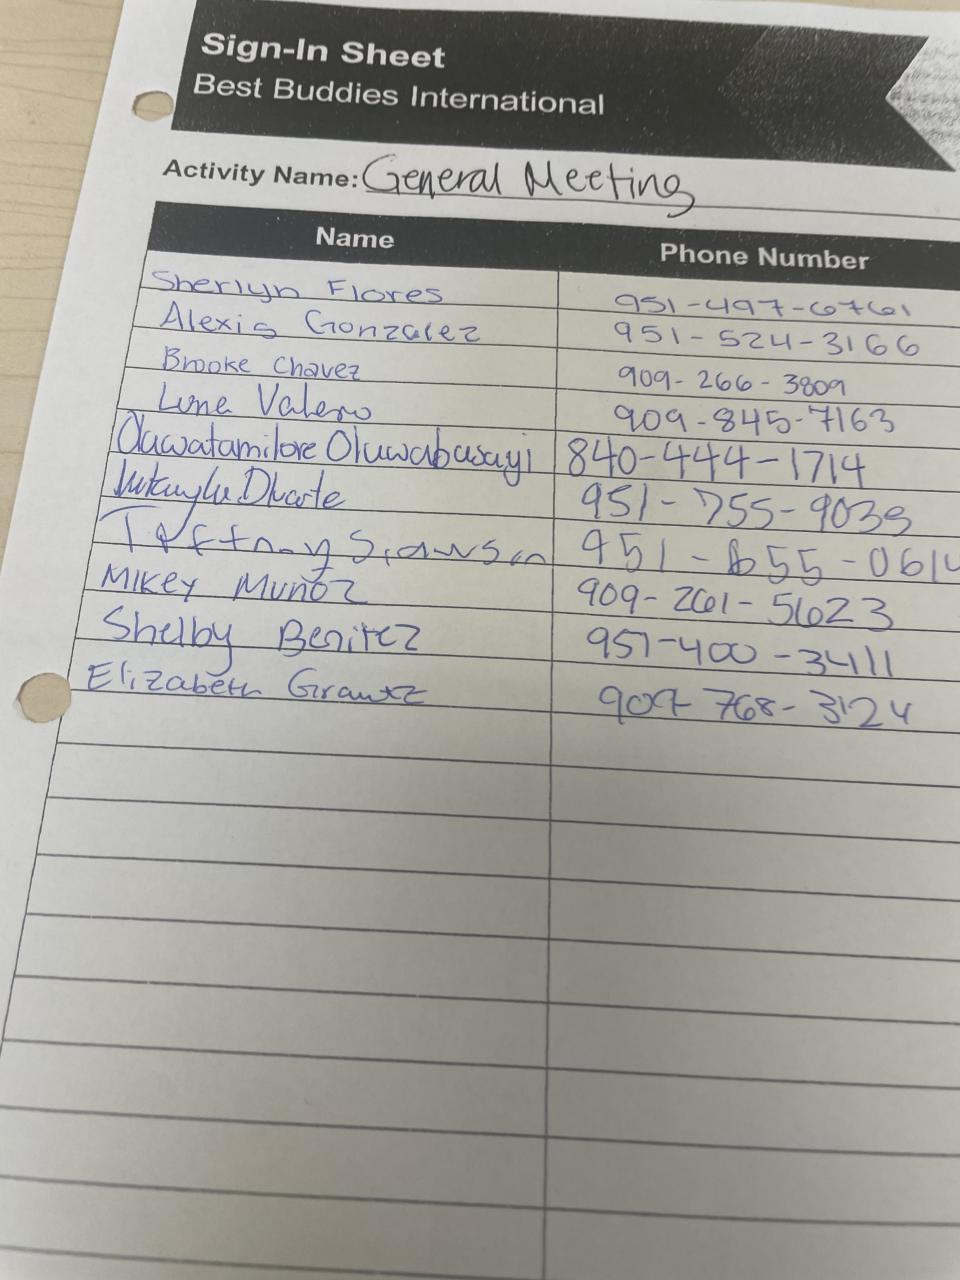 Sign-In Sheet
Best Buddies International
Activity Name: General Meeting
Name Phone Number
Sherlyn Flores 951-497-6761
Alexis Gonzalez 951-524-3166
Brooke Chavez 909-266-3809
Valero 909-845-7163
Oluwatamilore Oluwabusayi 840-444-1714
951-755-9039
951-655-061
Mikey Muñoz 909-261-5623
Shelby Benitez 951-400-3411
Elizabeth 768-3124